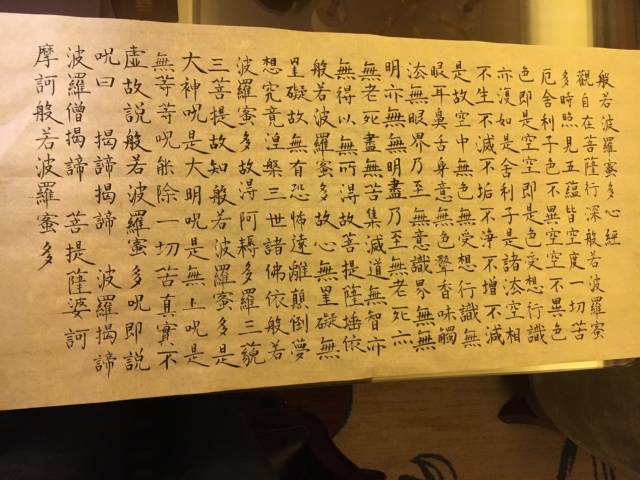 般若波羅蜜多心經
觀自在菩薩行深般若波羅蜜
多時照見五蘊皆空度一切苦
厄舍利子色不異空空不異色
色即是空空即是色受想行識
亦復如是舍利子是諸法空相
不生不滅不垢不淨不增不減
是故空中無色無受想行識無
眼耳鼻舌身意無色聲香味觸
法無眼界乃至無意識界無無
明亦無無明盡乃至無老死亦
無老死盡無苦集滅道無智亦
無得以無所得故菩提薩埵依
般若波羅蜜多故心無罣礙無
罣礙故無有恐怖遠離顛倒夢
想究竟涅槃三世諸佛依般若
波羅蜜多故得阿耨多羅三藐
三菩提故知般若波羅蜜多是
大神呪是大明呪是無上呪是
無等等呪能除一切苦真實不
虛故說般若波羅蜜多呪即說
呪曰 揭諦揭諦 波羅揭諦
波羅僧揭諦 菩提薩婆訶
摩訶般若波羅蜜多